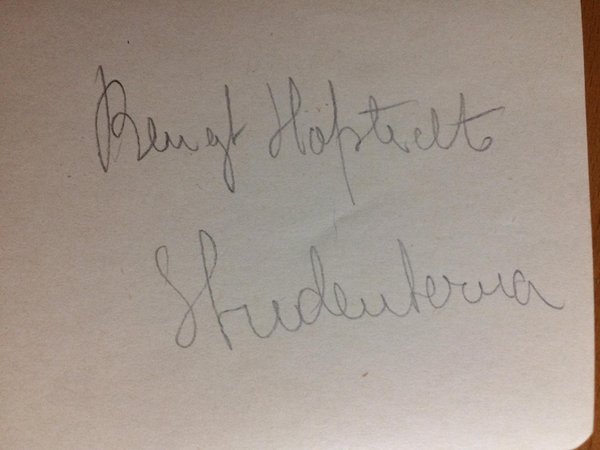 Bengt Höfstedt
Studenterna